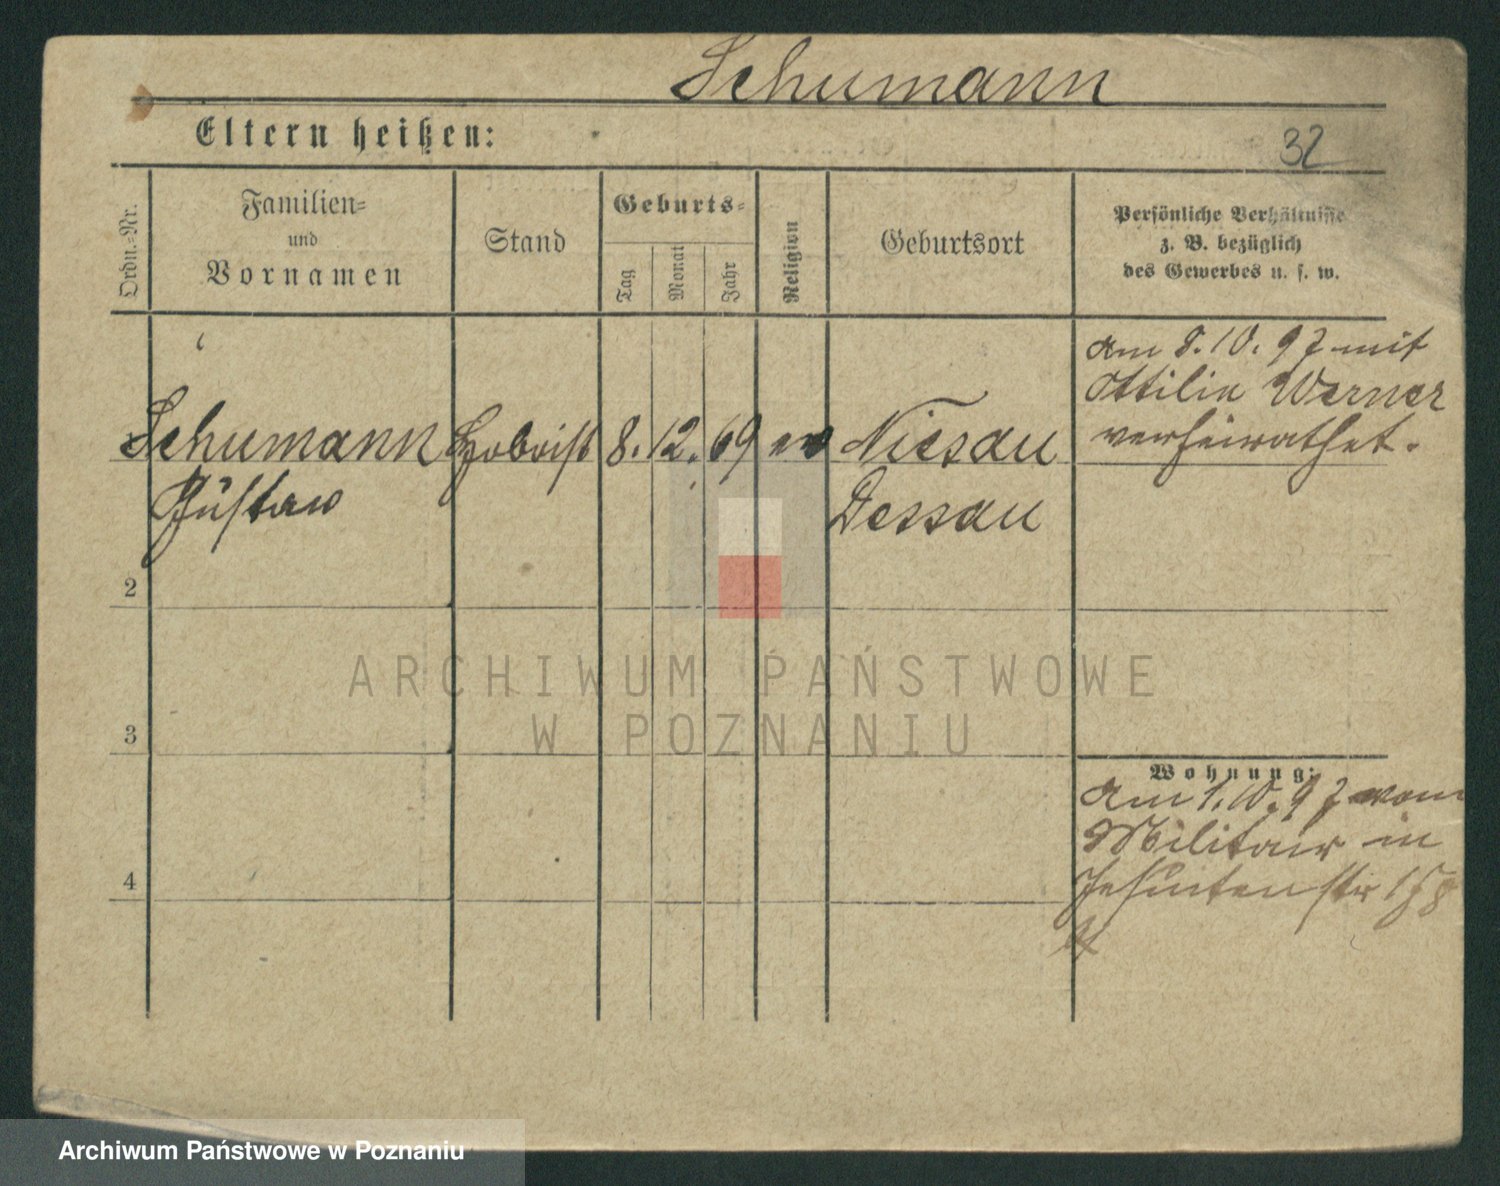 Schumann
Eltern heißen:
32
Ordn.=Nr.
Familien=
und
Vornamen
Stand
Geburts=
Tag
Monat
Jahr
Religion
Geburtsort
Persönliche Verhältnisse
z. B. bezüglich
des Gewerbes u. s. w.
am 8. 10. 97 mit
Ottilie Werner
verheirathet.
Schumann
8. 12. 69 ev
Niesau
Gustav
Dessau
2
3
4
ARCHIWUM PAŃSTWOWE
W POZNANIU
Wohnung:
am 1. 10. 97 vom
Militair in
Jesuitenstr
Archiwum Państwowe w Poznaniu